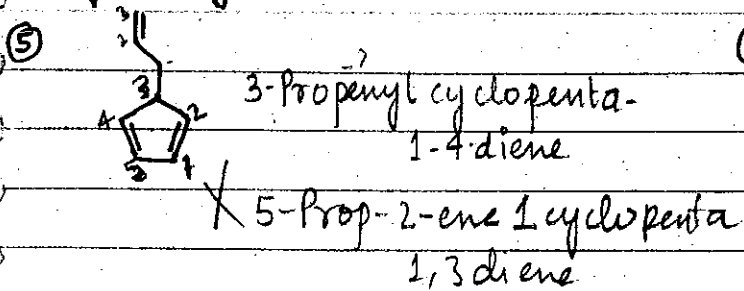 ⑤
3
2
-?
3
4
2
5
1
3-Propenyl cyclopenta-
1-4-diene
X 5-Prop-2-ene 1 cyclopenta
1,3 diene